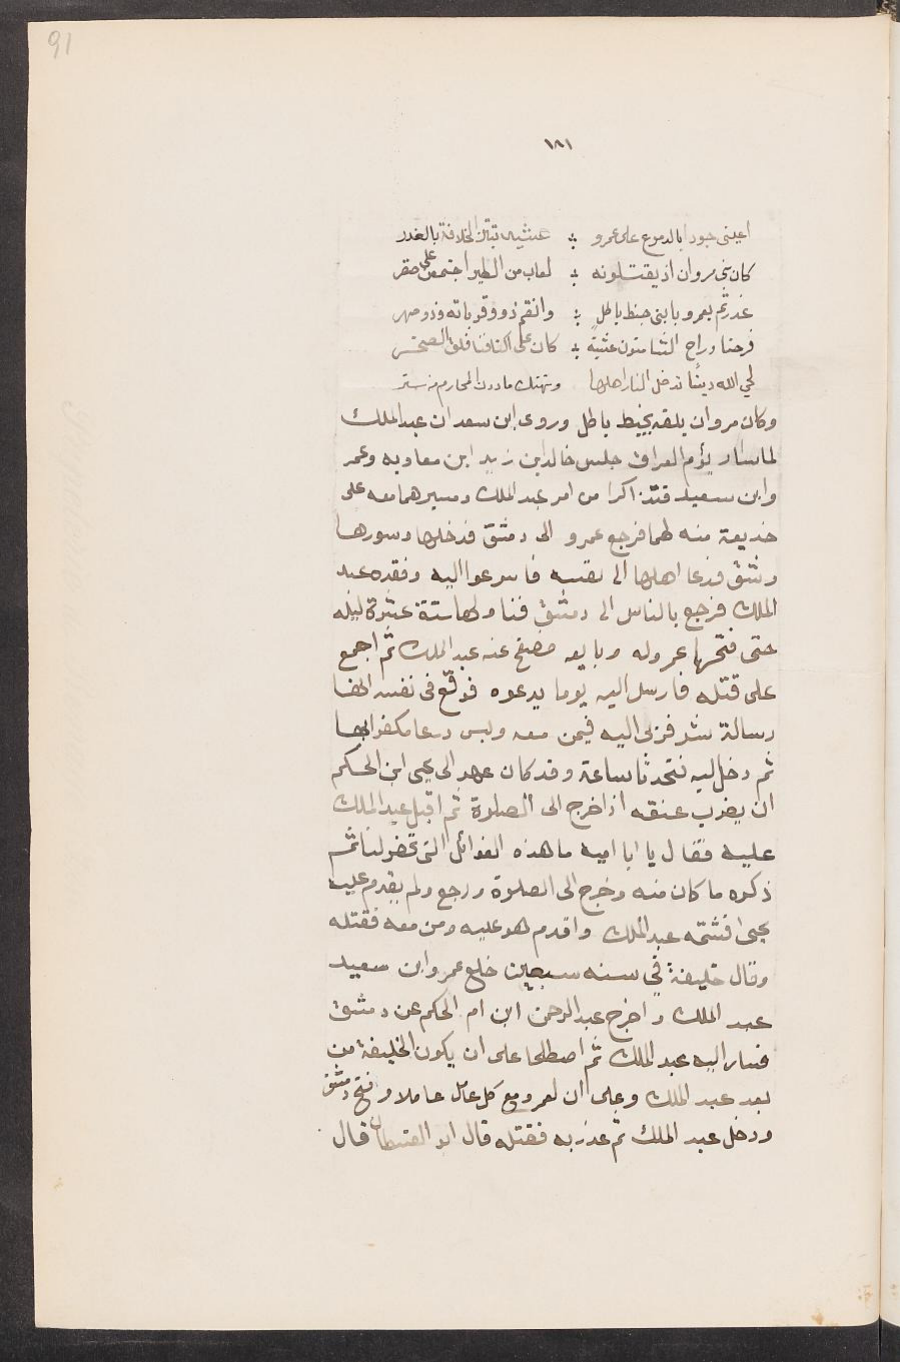 91
١٨١
اعينى جودا بالدموع على عمرو ؛ عشية تبتز الخلافة بالغدر
كان بنى مروان اذ يقتلونه ؛ لعاب من الطير اجتمعن على صقر
غدرتم بعمرو يا بنى خيط باطلٍ ؛ وانتم ذوو قرباته وذو صهر
فرحنا وراح الشامتون عشيةً ؛ كان على اكتافنا فلق الصخر
لحى الله دينًا تدخل النار اهلها وتهتك مادون المحارم من ستر
وكان مروان يلقب بخيط باطل وروى ابن سعد ان عبد الملك
لما سار يؤم العراق جلس خالد ابن زيد ابن معاويه وعمر
وابن سعيد فتذاكرا من امر عبد الملك ومسيرهما معه على
خديعة منه لهما فرجع عمرو الى دمشق فدخلها وسورها
وثيق فدعا اهلها الى نفسه فاسرعوا اليه وفقده عبد
الملك فرجع بالناس الى دمشق فنازلها ستة عشرة ليله
حتى فتحها عمرو له وبايعه فصفح عنه عبد الملك ثم اجمع
على قتله فارسل اليه يوما يدعوه فوقع فى نفسه انها
رسالة شر فزلى اليه فيمن معه ولبس درعا مكفرا بها
ثم دخل ليه فتحدثا ساعة وقد كان عهد الى يحى ابن الحكم
ان يضرب عنقه اذا خرج الى الصلوة ثم اقبل عبد الملك
عليه فقال يا ابا اميه ما هذه الغوائل التى تحفر لنا ثم
ذكره ما كان منه وخرج الى الصلوة ورجع ولم يقدم عليه
يحيى فشتمه عبد الملك واقدم هو عليه ومن معه فقتله
وقال خليفة فى سنه سبعين خلع عمر وابن سعيد
عبد الملك واخرج عبد الرحمن ابن ام الحكم عن دمشق
فسار اليه عبد الملك ثم اصطلحا على ان يكون الخليفة من
بعد عبد الملك وعلى ان لعمرو مع كل عامل عاملا وفتح دمشق
ودخل عبد الملك ثم غدر به فقتله قال ابو اليقظان قال